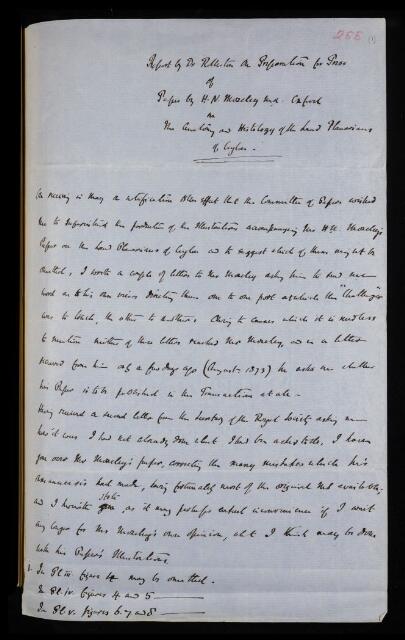 255 (1)
Report by Dr Rolleston on Preparation for Press
of
Paper by H. N. Moseley M.A. Oxford
on
The Anatomy and Histology of the Land Planarians
of Ceylon.
On receiving in May a notification to the effect that the Committee of Papers wished
me to superintend the production of the Illustrations accompanying Mr H. N. Moseley's
Paper on the Land Planarians of Ceylon and to suggest which of them might be
omitted, I wrote a couple of letters to Mr Moseley asking him to send me
word as to his own views directing them one to one port at which the "Challenger"
was to touch, the other to another. Owing to causes which it is needless
to mention neither of these letters reached Mr Moseley, and in a letter
received from him only a few days ago (August 1873) he asks me whether
his Paper is to be published in the Transactions at all.
Having received a second letter from the Secretary of the Royal Society asking me
had it was I had not already done what I had been asked to do, I have
gone over Mr Moseley's paper, correcting the many mistakes which his
amanuensis had made, having fortunately most of the original MS available,
and I herewith state as it may perhaps entail inconvenience if I wait
any longer for Mr Moseley's own opinion, what I think may be done
with his Paper's Illustrations.
1. In Pl. iii. figure 4 may be omitted.
In Pl. iv. figures 4 and 5
In Pl. v. figures 6. 7 and 8